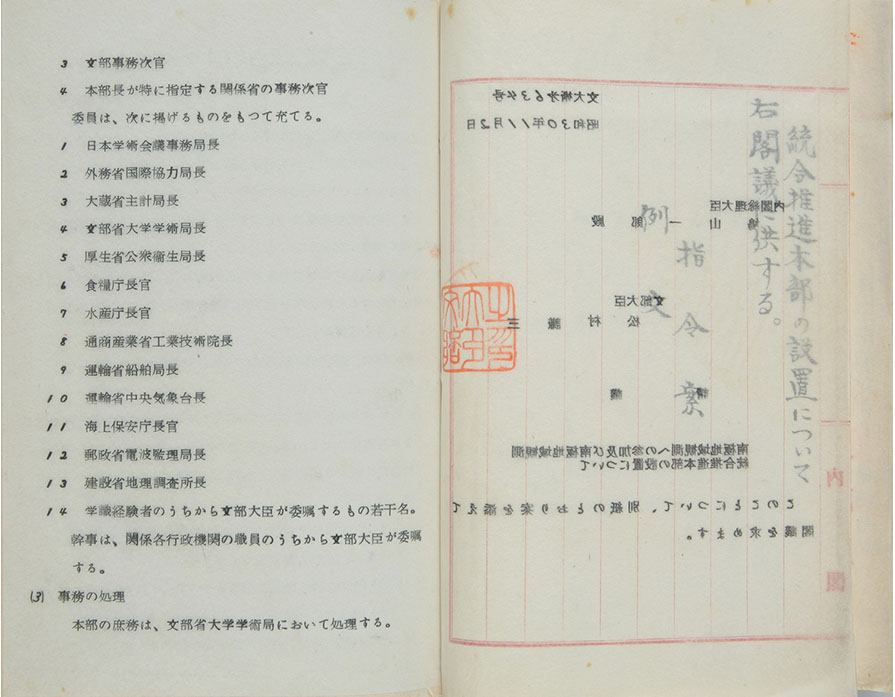 3 文部事務次官
4 本部長が特に指定する関係省の事務次官
委員は、次に掲げるものをもつて充てる。
1 日本学術会議事務局長
2 外務省国際協力局長
3 大蔵省主計局長
4 文部省大学学術局長
5 厚生省公衆衛生局長
6 食糧庁長官
7 水産庁長官
8 通商産業省工業技術院長
9 運輸省船舶局長
10 運輸省中央気象台長
11 海上保安庁長官
12 郵政省電波監理局長
13 建設省地理調査所長
14 学識経験者のうちから文部大臣が委嘱するもの若干名。
幹事は、関係各行政機関の職員のうちから文部大臣が委嘱
する。
(3) 事務の処理
本部の庶務は、文部省大学学術局において処理する。
統合推進本部の設置について
右閣議に供する。
指令案
例文
昭和30年11月2日
内閣総理大臣
鳩山一郎殿
文部大臣
松村謙三
請議
南極地域観測への参加及び南極地域観測
統合推進本部の設置について
このことについて、別紙のとおり案を添えて
閣議を求めます。
内閣